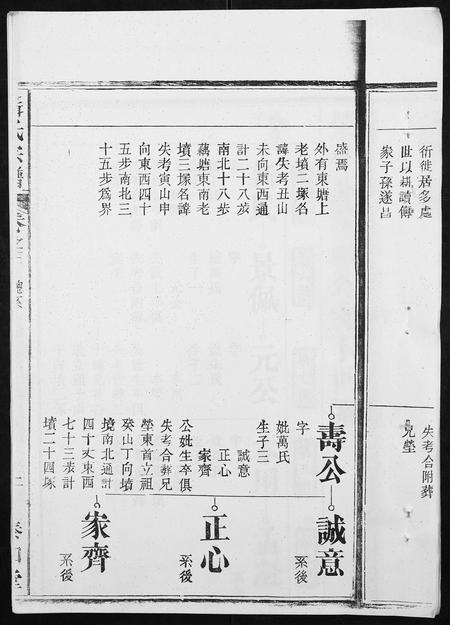 衍徙居多處
世以耕讀傳
家子孫遂昌
失考合附葬
兄塋
盛焉
外有東塘上
老墳二塚名
諱失考丑山
未向東西通
計二十八步
南北十八步
藕塘東南老
墳三塚名諱
失考寅山申
向東西四十
五步南北三
十五步爲界
壽公
字
妣萬氏
生子三
誠意
正心
家齊
公妣生卒俱
失考合葬兄
塋東首立祖
癸山丁向墳
境南北通計
四十丈東西
七十三步計
墳二十四塚
誠意
系後
正心
系後
家齊
系後
氏宗譜
卷之二
總系
二
堂